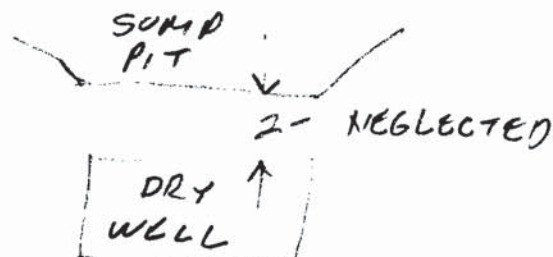 SUMP
PIT
2- NEGLECTED
DRY
WELL